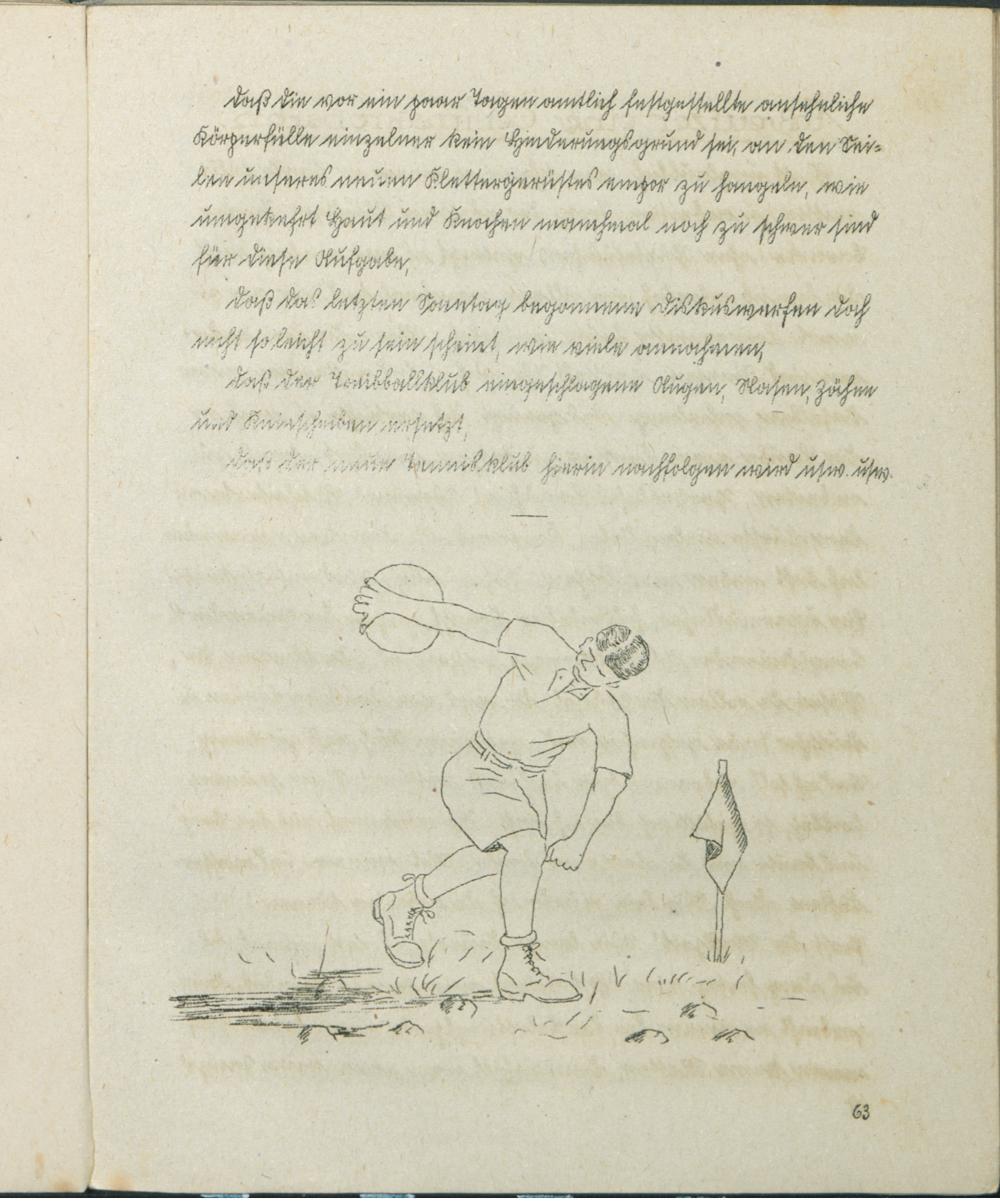 daß die vor ein paar Tagen amtlich festgestellte ansehnliche
Körperfülle einzelner kein Hinderungsgrund sei, an den Sei-
len unseres neuen Klettergerüstes empor zu hangeln, wie
umgekehrt Haut und Knochen manchmal noch zu schwer sind
für diese Aufgabe,
daß das letzten Sonntag begonnene Diskuswerfen doch
nicht so leicht zu sein scheint, wie viele annahmen,
daß der Treibballklub eingeschlagene Augen, Nasen, Zähne
und Kniescheiben ersetzt,
daß der neue Tennisklub hierin nachfolgen wird usw. usw.
63